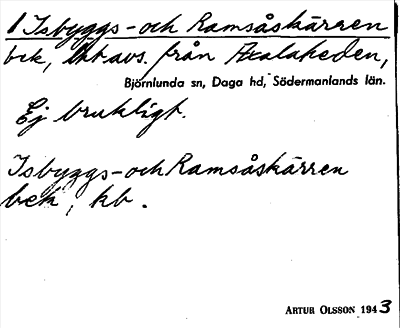 1 Isbyggs- och Ramsåskärren
bek, lht avs. från Axalaheden,
Björnlunda sn, Daga hd, Södermanlands län.
Ej brukligt.
Isbyggs- och Ramsåskärren
bek, kb.
ARTUR OLSSON 1943